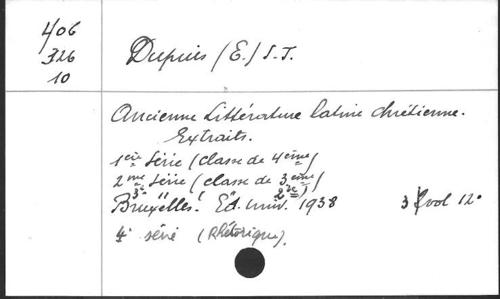 406
326
10
Dupuis (E.) S.J.
Ancienne Littérature latine chrétienne.
Extraits.
1ère Série (classe de 4ème)
2me Série (classe de 3ème)
3e " " 2de)
Bruxelles. Ed. Univ. 1938 3 vol 12°
4e série (Rhétorique).